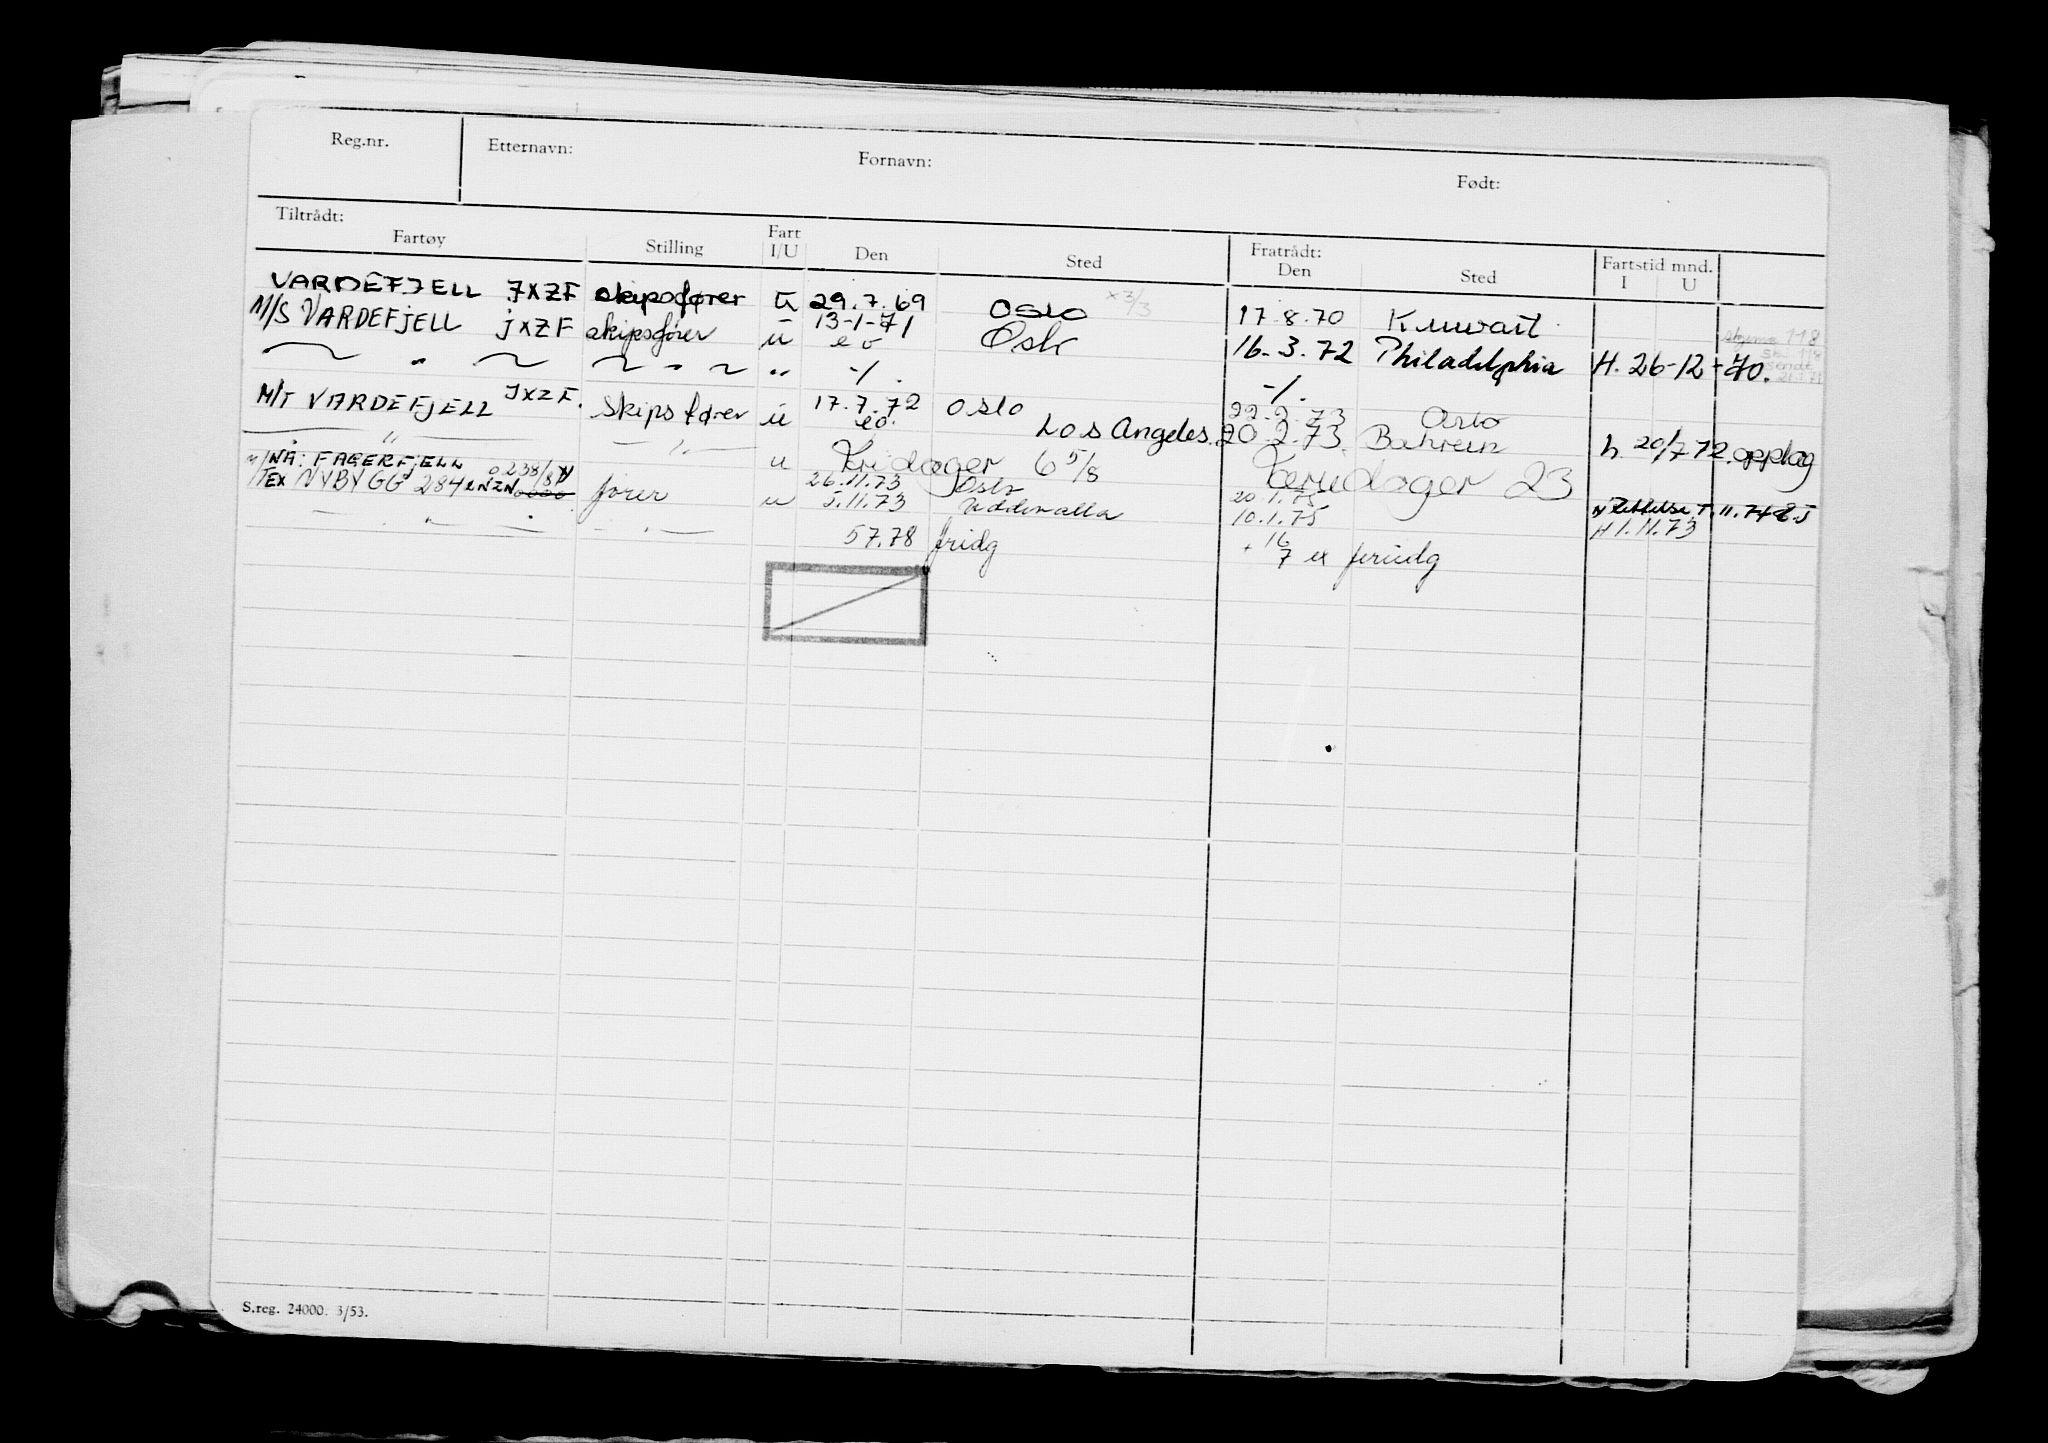 Reg.nr. Etternavn: Fornavn: Født:
Tiltrådt: Fratrådt:
Fartøy Stilling Fart I/U Den Sted Den Sted Fartstid mnd. I U
VARDEFJELL JXZF skipsfører U 29.7.69 OSLO x3/3 17.8.70 Kuwait
M/S VARDEFJELL JXZF skipsfører u 13-1-71 Oslo 16.3.72 Philadelphia H. 26-12-70.
" " " eo -/. -/.
M/T VARDEFJELL JXZF. skipsfører u 17.7.72 OSLO 22.2.73 Oslo
" " eo. Los Angeles. 20.2.73. Bahrein h. 20/7 72. opplag
NÅ: FAGERFJELL 0238/8 u Fridager 6 5/8 Feriedager 23
M/T EX NYBYGG 284 LNZN fører u 26.11.73 Oslo 20.1.75
" " 5.11.73 Uddevalla 10.1.75 H 1.11.73
57.78 fridg 16
+ 7 ex feriedg
S.reg. 24000. 3/53.